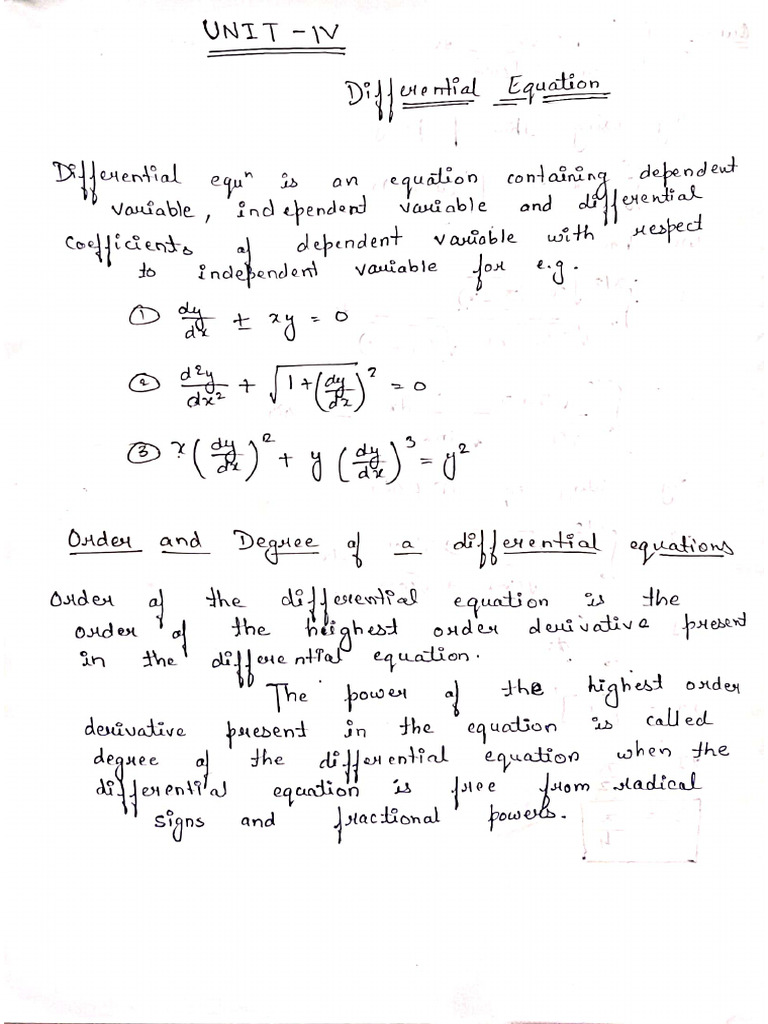 UNIT - IV
Differential Equation
Differential equⁿ is an equation containing dependent
variable, independent variable and differential
coefficients of dependent variable with respect
to independent variable for e.g.
① dy/dx ± xy = 0
② d²y/dx² + √1+(dy/dx)² = 0
③ x(dy/dx)² + y(dy/dx)³ = y²
Order and Degree of a differential equations
Order of the differential equation is the
order of the heighest order derivative present
in the differential equation.
The power of the highest order
derivative present in the equation is called
degree of the differential equation when the
differential equation is free from radical
signs and fractional powers.